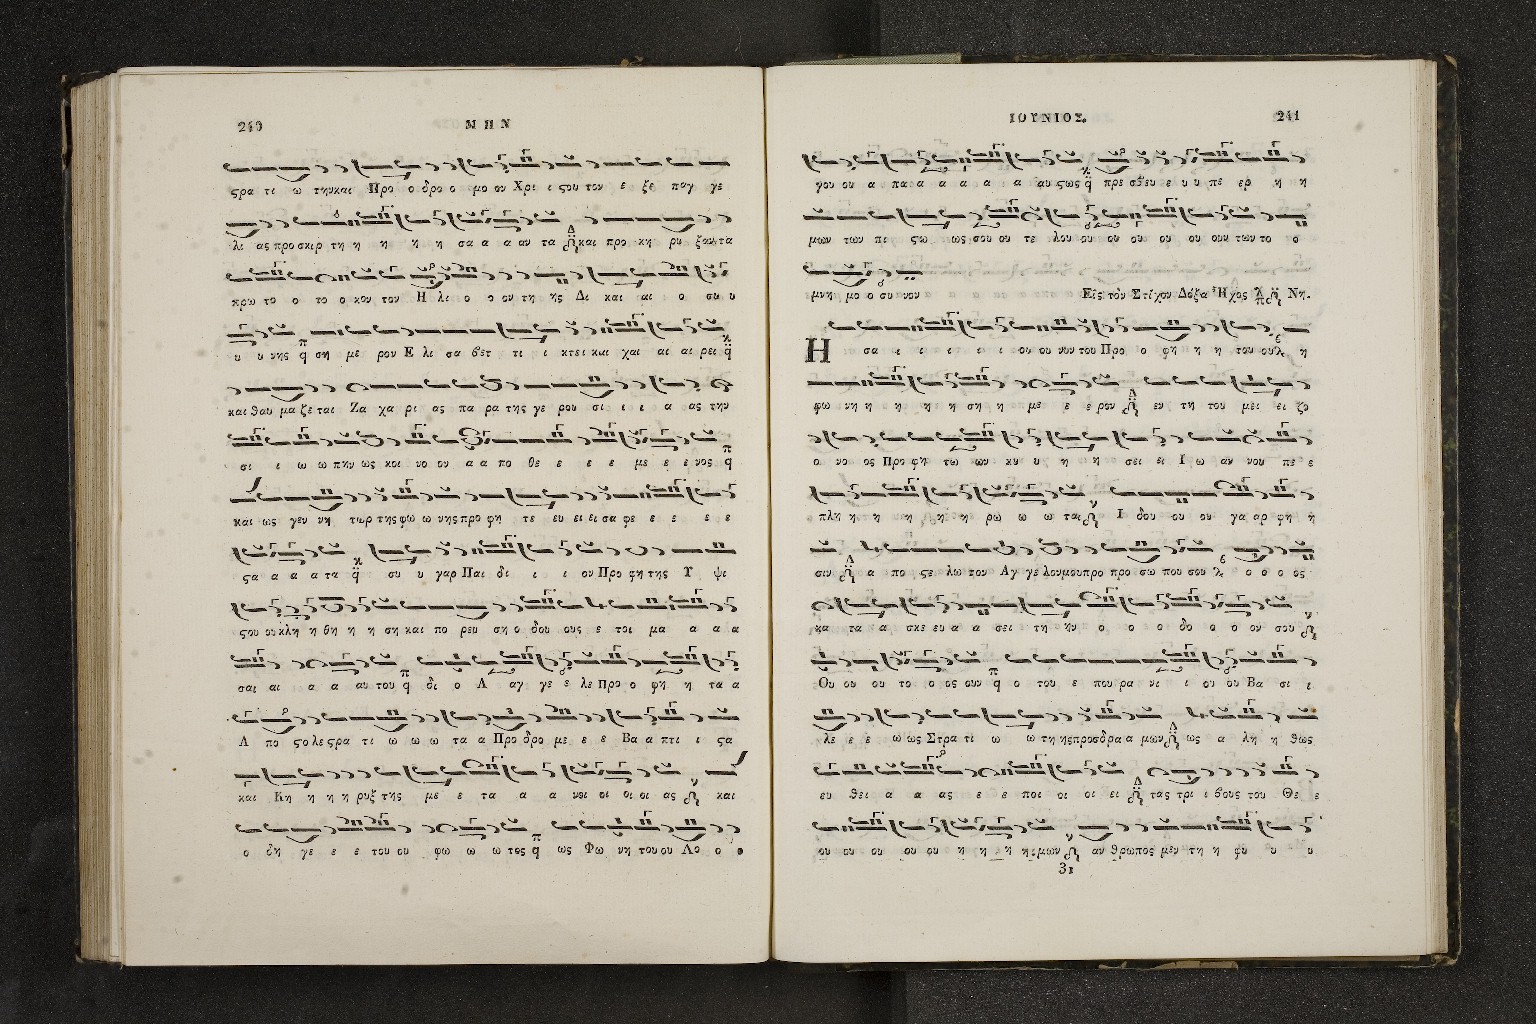 240
ΜΗΝ
ϛρα τι ω την και Προ ο δρο ο μο ου Χρι ι ϛου τον ε ξε παγ γε
λι ας προ σκιρ τη η η η η σα α α αν τα και προ κη ρυ ξαν τα
πρω το ο το ο κον τον Η λι ο ο ον τη ης Δι και αι ο συ υ
υ υ νης ση με ρον Ε λι σα βετ τι ι κτει και χαι αι αι ρει
και θαυ μα ζε ται Ζα χα ρι ας πα ρα της γε ρου σι ι ι α ας την
σι ι ω ω πην ως κοι νο ου α α πο θε ε ε ε με ε ε νος
και ως γεν νη τωρ της φω ω νης προ φη τε ευ ει ει σα φε ε ε ε ε
ϛα α α α τα συ υ γαρ Παι δι ι ι ον Προ φη της Υ ψι
ϛου ου κλη η θη η η ση και πο ρευ ση ο δου ους ε τοι μα α α α
σαι αι α α αυ του δι ο Α αγ γε ε λε Προ ο φη η τα α
Α πο ϛο λε ϛρα τι ω ω ω τα α Προ δρο με ε ε Βα α πτι ι ϛα
και Κη η η η ρυξ της με ε τα α α νοι οι οι οι ας και
ο δη γε ε ε του ου φω ω ω τος ως Φω νη του ου Λο ο
ΙΟΥΝΙΟΣ.
241
γου ου α πα α α α α αυ ϛως πρε σβευ ε υ υ πε ερ η η
μων των πι ϛω ως σου ου τε λου ου ου ου ου ου ουν των το ο
μνη μο ο συ νον
Εἰς τὸν Στίχον Δόξα Ἦχος Νη.
Η σα ι ι ι ι ι ου ου νυν του Προ ο φη η η του ου η
φω νη η η η η ση η με ε ε ρον εν τη του μει ει ζο
ο νο ος Προ φη τω ων κυ υ η η σει ει Ι ω αν νου πε ε
πλη η η η η η ρω ω ω ται Ι δου ου ου γα αρ φη η
σιν α πο ϛε λω τον Αγ γε λον μου προ προ σω που σου ο ο ο ος
κα τα α σκε ευ α α σει τη ην ο ο ο δο ο ο ον σου
Ου ου ου το ο ος ουν ο του ε που ρα νι ι ου ου Βα σι ι
λε ε ε ω ως Στρα τι ω ω τη ης προς δρα α μων ως α λη η θως
ευ θει α α ας ε ε ποι οι οι ει τας τρι ι βους του Θε ε
ου ου ου ου ου η η η η μων αν θρωπος μεν τη η φυ υ υ
31